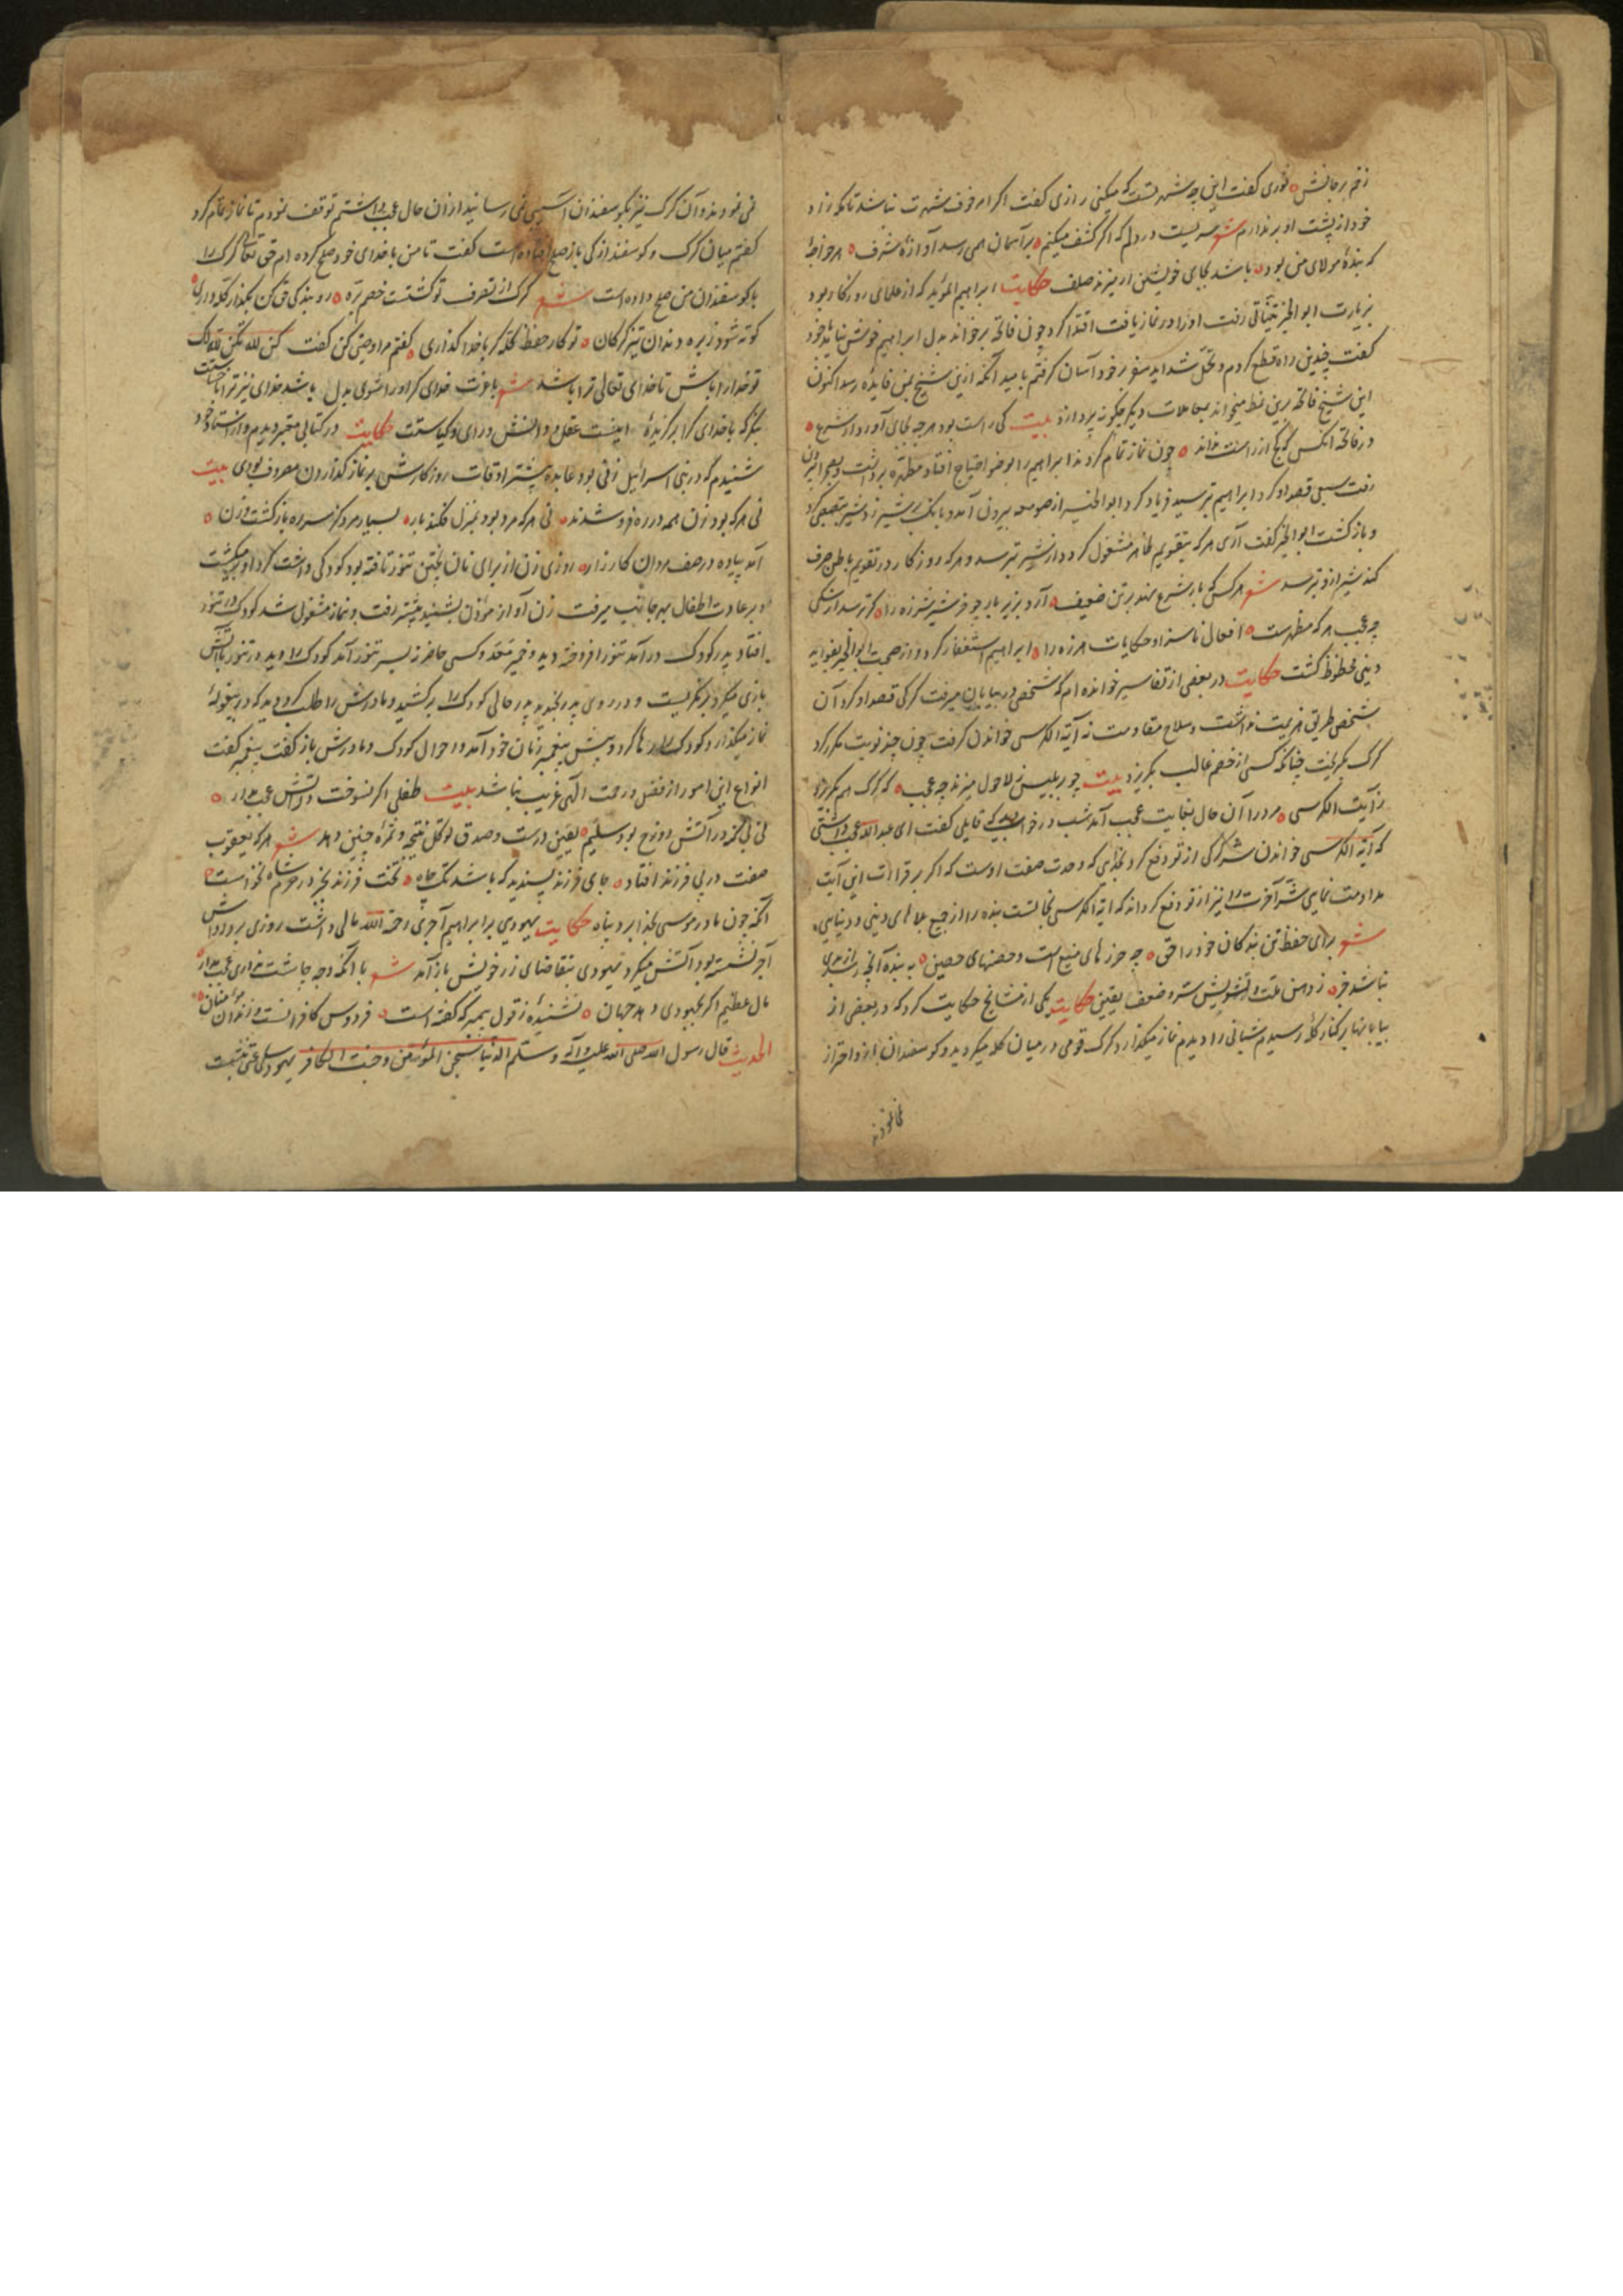 زخم بر جانش نوری کفت این چه شهرتست که میکنی رازی کفت اکر امر خوف شهرت نباشد
خود از پشت او بر ندارم شعر سریست در دلم که اکر کشف میکنم بر آسمان همی رسد آوازهٔ شرف هر خواجهٔ
که بندهٔ مولای من بود باشد بجای خویشتن ار میزند صلف حکایت ابراهیم المؤید که از علمای روزکار بود
بزیارت ابو الخیر رفت او را در نماز یافت اقتدا کرد چون فاتحه برخواند بدل ابراهیم خوش نیامد با خود
کفت چندین راه قطع کردم و تحمل شداید سفر بر خود آسان کرفتم بامید آنکه ازین شیخ بمن فایدهٔ رسد اکنون
این شیخ فاتحه برین نمط میخواند بمعاملات دیکر چکونه پردازد بیت کی راست بود هرچه بجای آورد از شرع
در فاتحه انکس که کج از راست نداند چون نماز تمام کردند ابراهیم را بوضو احتیاج افتاد مطهره برداشت و بصحرا بیرون
رفت سبعی قصد او کرد ابراهیم بترسید فریاد کرد ابوالخیر از صومعه بیرون آمد و بانک بر شیر زد شیر
و باز کشت ابوالخیر کفت آری هر که بتقویم ظاهر مشغول کردد از شیر بترسد و هر که روزکار در تقویم باطن صرف
کند شیر ازو بترسد شعر هر کس که بار شرع نهد بر تن ضعیف آرد بزیر بار چو خر شیر شرزه را کر ترسد از سکی
چه عجب هر که مظهرست افعال ناسزا و حکایات هرزه را ابراهیم استغفار کرد و از صحبت ابوالخیر بفواید
دینی محظوظ کشت حکایت در بعضی از تفاسیر خوانده ام که شخصی در بیابان میرفت کرکی قصد او کرد آن
شخص طریق هزیمت نداشت و سلاح مقاومت نه آیة الکرسی خواندن کرفت چون چند نوبت مکرر کرد
کرک بکریخت چنانکه کسی از خصم غالب بکریزد بیت چو بر بلیس لاحول میزند چه عجب که کرک هم بکریزد
ز آیت الکرسی مرد را آن حال بغایت عجب آمد شب در خواب دید که قایلی کفت ای عبدالله عجب داشتی
که آیة الکرسی خواندن شر کرک از تو دفع کرد بخدایی که وحدت صفت اوست که اکر بر قراءت این آیت
مداومت نمایی شر آخرت را نیز از تو دفع کرداند که آیة الکرسی نجاتست بنده را از جمیع بلاهای دینی و دنیایی
شعر برای حفظ تن بندکان خود را حق چه حرزهای منیع است و حصنهای حصین به بنده آنچه رسد
نباشد جز ز دامن علت و تشویش ستر و ضعف یقین حکایت یکی از مشایخ حکایت کرد که در بعضی از
بیابانها بر کنار کله رسیدم شبانی را دیدم نماز میکذارد کرک قومی در میان کله میکردید و کوسفندان ازو احتراز
نمی نمودند
نمی نمودند و آن کرک نیز بکوسفندان آسیبی نمی رسانید از آن حال عجب داشتم توقف نمودم تا نماز تمام کرد
کفتم میان کرک و کوسفند از کی باز صلح افتاده است کفت تا من با خدای خود صلح کرده ام حق تعالی کرک را
با کوسفندان من صلح داده است شعر کرک از تصرف تو کشتست خصم بره رو بندکی حق کن بکذار کله
کوته شود ز بره دندان تیز کرکان تو کار حفظ کله کر با خدا کذاری کفتم مرا وصیتی کن کفت کن لله یکن لله لک
تو خدا را باش تا خدای تعالی ترا باشد شعر باعزت خدای کر او را شوی بدل باشد خدای نیز ترا
بنکر که با خدای کرا برکزیدهٔ اینست عقل و دانش و رای و کیاستت حکایت در کتابی معتبر دیدم و از استاد خود
شنیدم که در بنی اسرائیل زنی بود عابده بیشتر اوقات روزکارش بر نماز کذاردن مصروف بودی بیت
نی هر که بود زن همه در ره فرو شدند نی هر که مرد بود بمنزل فکند بار بسیار مرد کز سر ره باز کشت و زن
آمد پیاده در صف مردان کارزار روزی زن از برای نان پختن تنور تافته بود کودکی داشت کرد او میکشت
و بر عادت اطفال بهر جانب میرفت زن آواز مؤذن بشنید پیشتر رفت و بنماز مشغول شد کودک در تنور
افتاد پدر کودک درآمد تنور افروخته دید و خمیر معد و کسی حاضر نه بسر تنور آمد کودک را دید در تنور با آتش
بازی میکرد بنکریست و در روی پدر بخندید پدر حالی کودک را برکشید و مادرش را طلب کرد دید که در بیغولهٔ
نماز میکذارد کودک را رها کرد و پیش پیغمبر زمان خود آمد و احوال کودک و مادرش باز کفت پیغمبر کفت
انواع این امور از فضل و رحمت الهی غریب نباشد بیت طفلی اکر نسوخت در آتش عجب مدار
نی بچه در آتش دوزخ بود سلیم یقین درست و صدق توکل نتیجه و ثمره چنین دهد شعر هر که یعقوب
صفت در پی فرزند افتاد جای فرزند پسندید که باشد تک چاه تخت فرزند بجز در حرم شاه نخواست
آنکه چون مادر موسی بخدا برد پناه حکایت یهودی بر ابراهیم آجری رحمة الله مالی داشت روزی بر در
آجر نشسته بود آتش میکرد یهودی بتقاضای زر خویش باز آمد شعر با آنکه وجه چاشت نداری عجب مدار
مال عظیم اکر بجهودی دهد جهان نشنیدهٔ ز قول پیمبر که کفته است فردوس کافرانست و زندان مؤمنان
الحدیث قال رسول الله صلی الله علیه وآله وسلم الدنیا سجن المؤمن وجنت الکافر یهود ساعتی بنشست